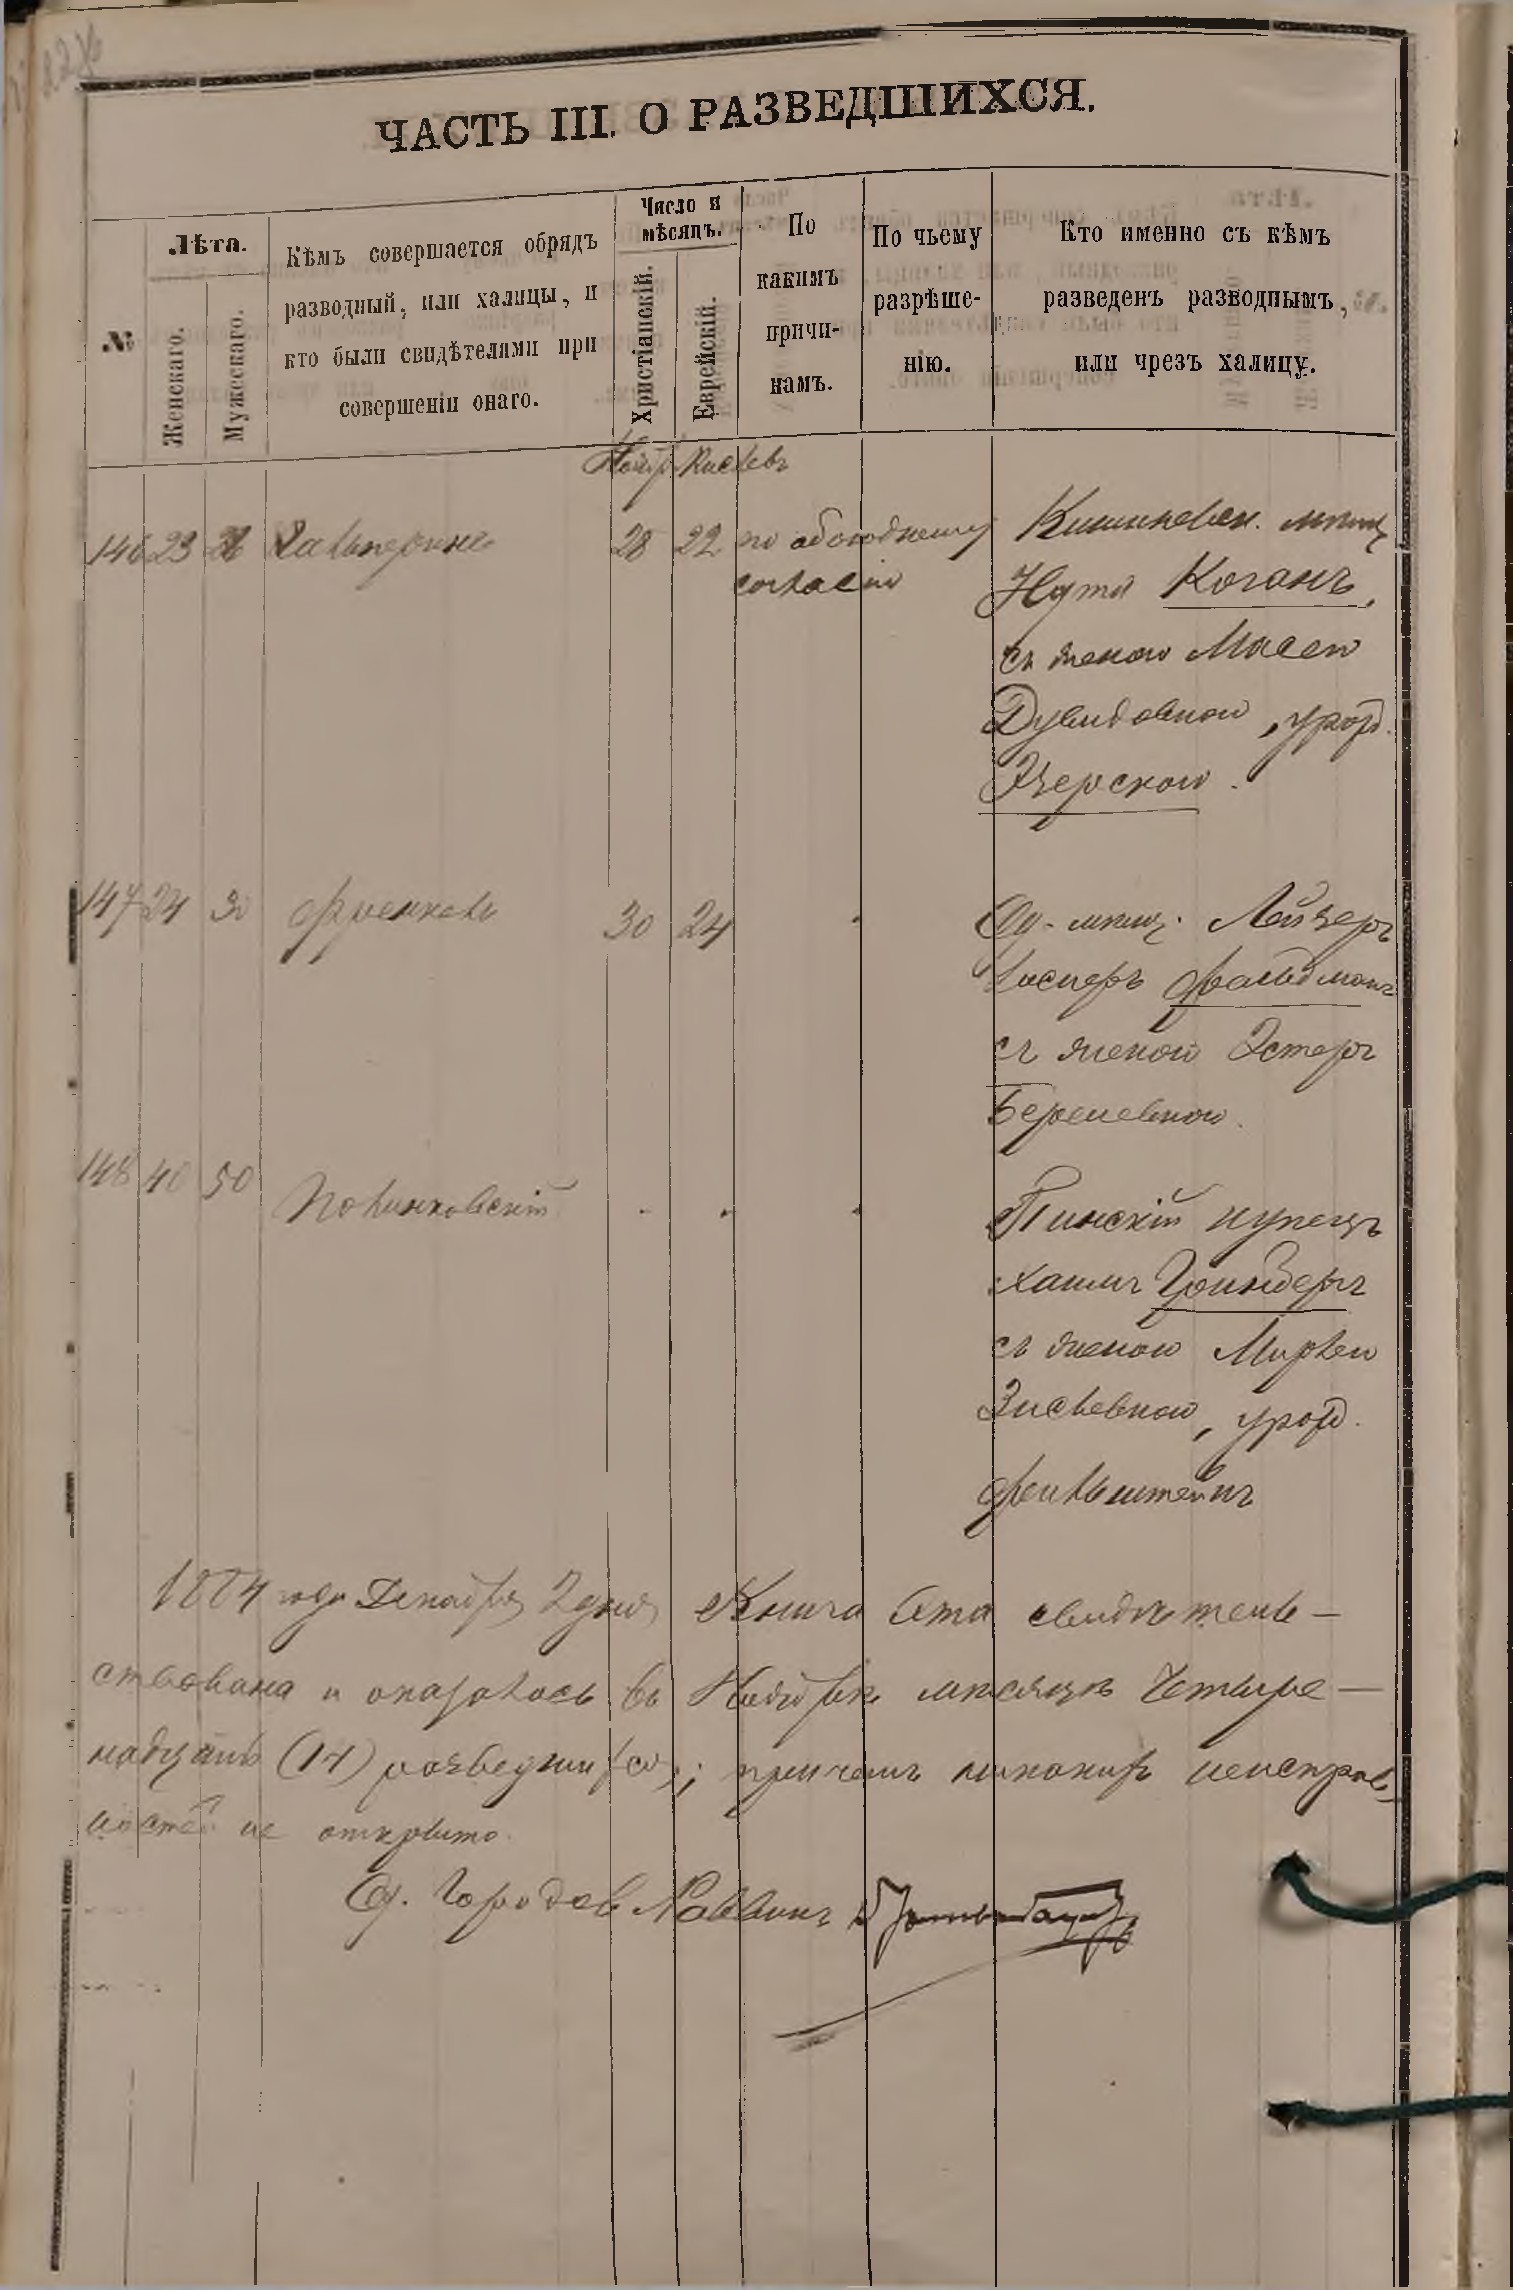 ЧАСТЬ III. О РАЗВЕДШИХСЯ.
№
Лѣта.
Женскаго.
Мужескаго.
Кѣмъ совершается обрядъ
разводный, или халицы, и
кто были свидѣтелями при
совершеніи онаго.
Число и
мѣсяцъ.
Христіанскій.
Еврейскій.
По
какимъ
причи-
намъ.
По чьему
разрѣше-
нію.
Кто именно съ кѣмъ
разведенъ разводнымъ,
или чрезъ халицу.
Ноябр Кислевъ
146 23 26 Гальперинъ 28 22 по обоюдному
согласію
Кишиневск. мѣщ
Нута Коганъ,
съ женою Масею
Дувидовною, урож.
Озерскою.
147 24 30 Френкель 30 24
Од. мѣщ. Лейзеръ
Іосперъ Фельдманъ
съ женою Эстеръ
Берелевною.
148 40 50 Полинковскій
Пинскій купецъ
Хаимъ Гринбергъ
съ женою Мирлею
Зисьевною, урож.
Финкельштейнъ
1884 года Декабря 2 дня Книга эта свидѣтель-
ствована и оказалось въ Ноябрѣ мѣсяцѣ Четыре-
надцать (14) разведшихся; причемъ никакихъ неисправ-
ностей не открыто.
Од. Городов. Раввинъ